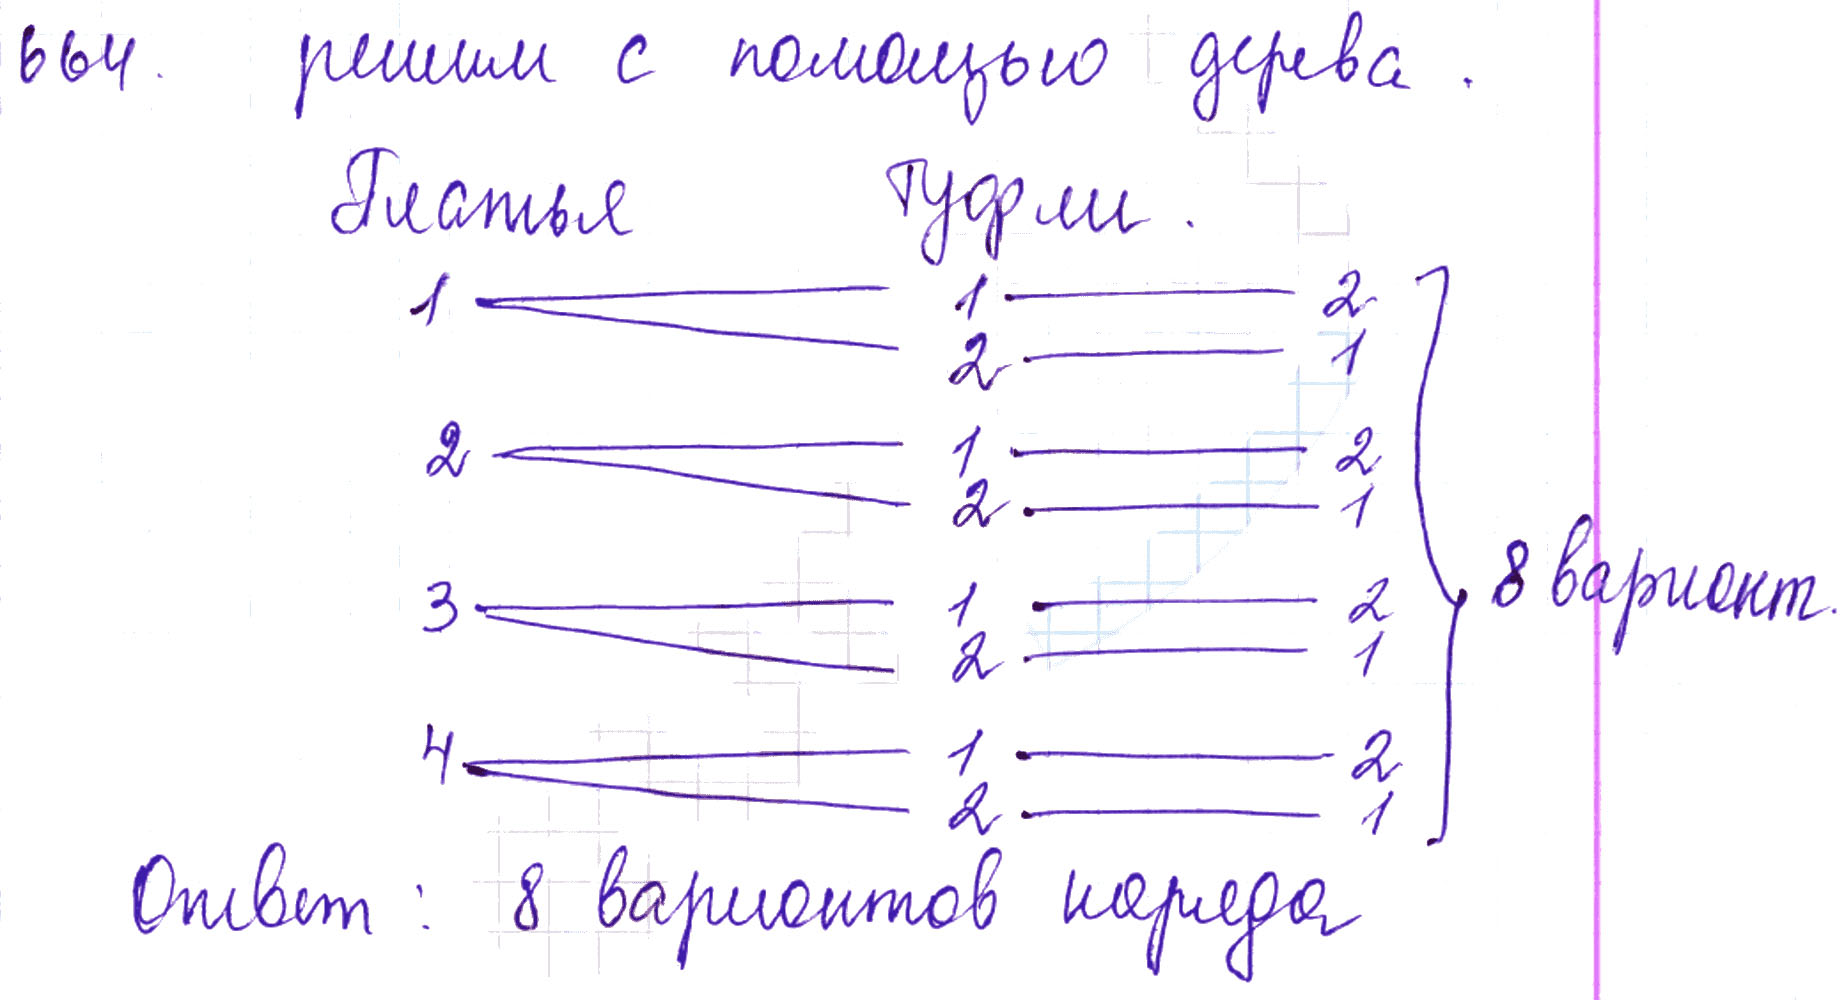 664. решим с помощью дерева.
Платья Туфли.
1 1 2
2 1
2 1 2
2 1
8 вариант.
3 1 2
2 1
4 1 2
2 1
Ответ: 8 вариантов наряда